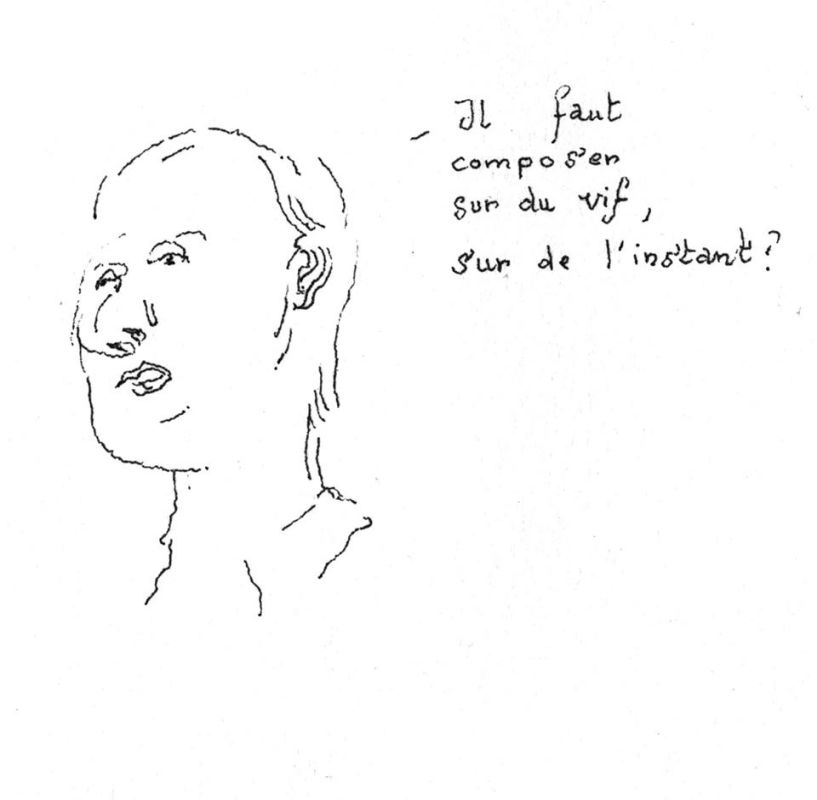 - Il faut
composer
sur du vif,
sur de l'instant?